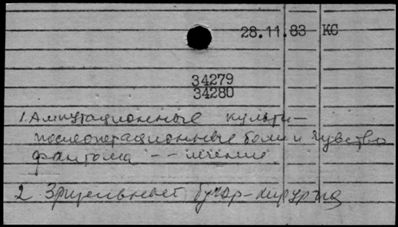 28.11.83 КС
34279
34280
1. Ампутационные культи -
послеоперационные боли и чувство
фантома -- лечение
2.